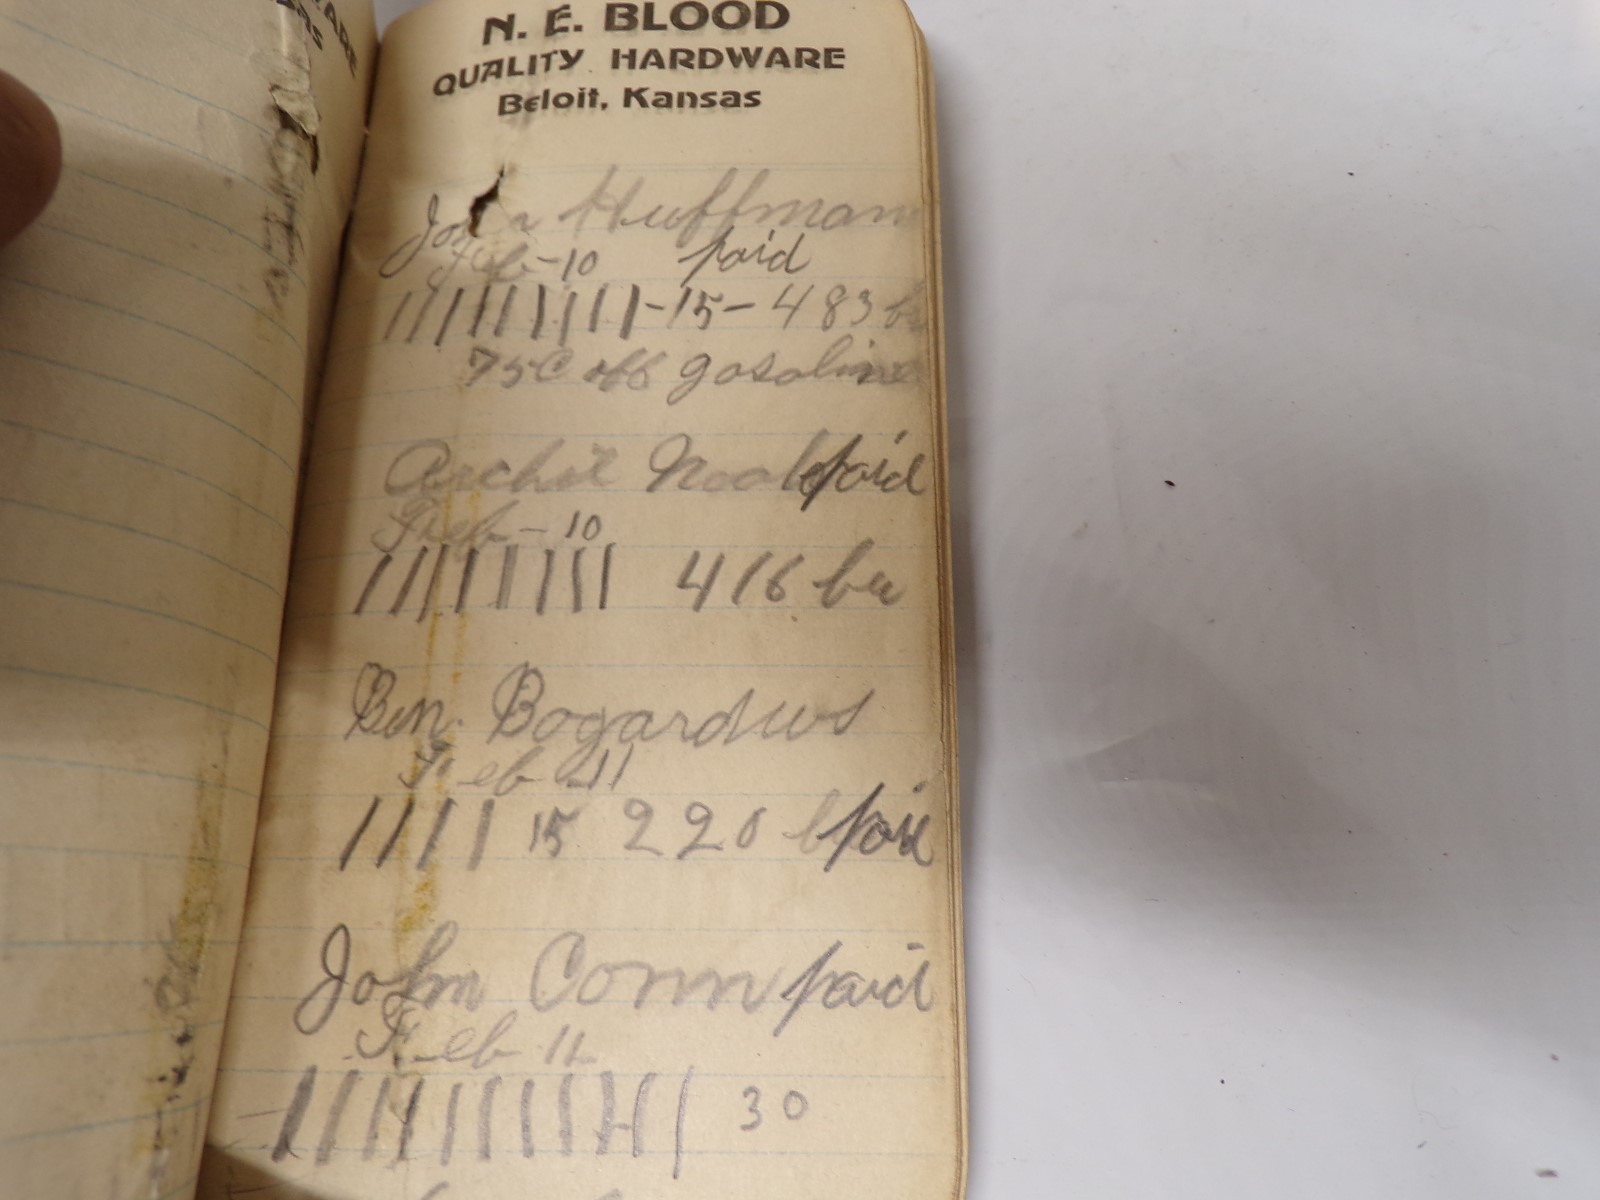 N. E. BLOOD
QUALITY HARDWARE
Beloit, Kansas
John Huffman
Feb-10 paid
||||||||||-15-483 bu
75C off gasoline
Archie paid
Feb-10
|||||||| 416 bu
Ben. Bogardus
Feb 11
|||| 15 220 paid
John Conn paid
Feb 11
||||||||||| 30